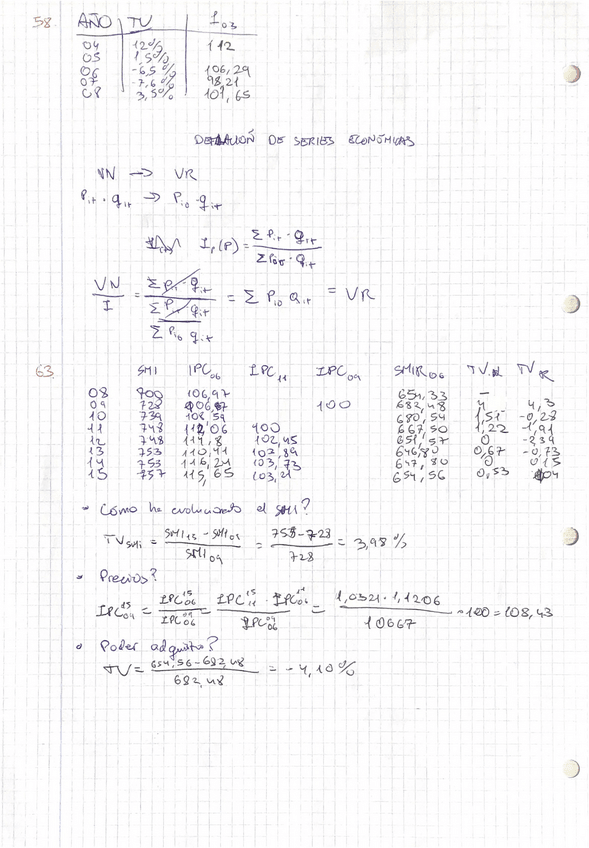 58. AÑO TV I03
04 12% 112
05 1,5%
06 -6,5% 106,29
07 -7,6% 98,21
08 3,5% 101,65
DEFLACIÓN DE SERIES ECONÓMICAS
VN → VR
Pit · qit → Pi0 · qit
Ip(P) = Σ Pit · qit / Σ Pi0 · qit
VN / I = Σ Pit · qit / (Σ Pit qit / Σ Pi0 qit) = Σ Pi0 qit = VR
63. SMI IPC06 IPC11 IPC09 SMIR06 TVN TVR
08 700 106,97 654,33 -
09 728 106,67 100 682,48 4 4,3
10 739 108,59 680,54 1,51 -0,28
11 748 112,06 100 667,50 1,22 -1,91
12 748 114,8 102,45 651,57 0 -2,39
13 753 116,41 103,89 646,80 0,67 -0,73
14 753 116,24 103,73 647,80 0 0,15
15 757 115,65 103,21 654,56 0,53 1,04
• Cómo ha evolucionado el SMI?
TVSMI = SMI15 - SMI09 / SMI09 = 757-728 / 728 = 3,98 %
• Precios?
IPC09 15 = IPC06 15 / IPC06 09 = IPC11 15 · IPC06 11 / IPC06 09 = 1,0321 · 1,1206 / 10667 · 100 = 108,43
• Poder adquitivo?
TV = 654,56-682,48 / 682,48 = -4,10%